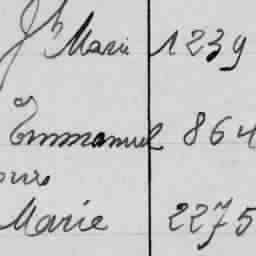 Jh Marie 1239
Emmanuel 864
Marie 2275